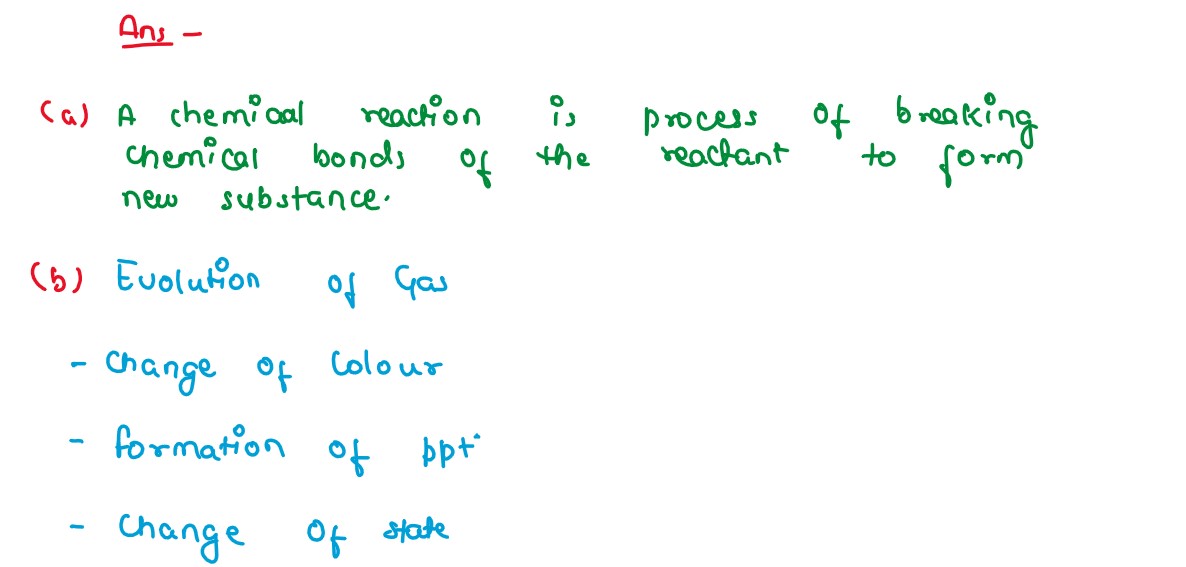 Ans -
(a) A chemical reaction is process of breaking
chemical bonds of the reactant to form
new substance.
(b) Evolution of Gas
- Change of Colour
- formation of ppt
- Change of state